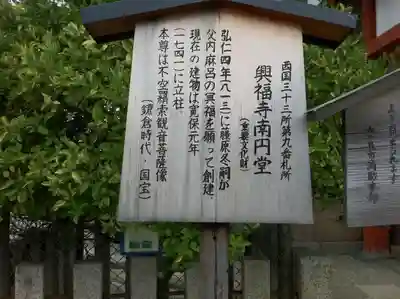 西国三十三所第九番札所
興福寺南円堂
(重要文化財)
弘仁四年(八一三)に藤原冬嗣が
父内麻呂の冥福を願って創建
現在の建物は寛保元年
(一七四一)に立柱
本尊は不空羂索観音菩薩像
(鎌倉時代・国宝)